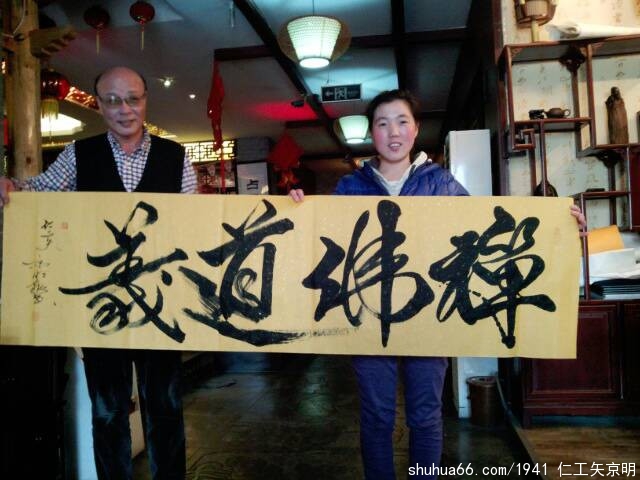 禪佛道義
shuhua66.com/1941 仁工矢京明